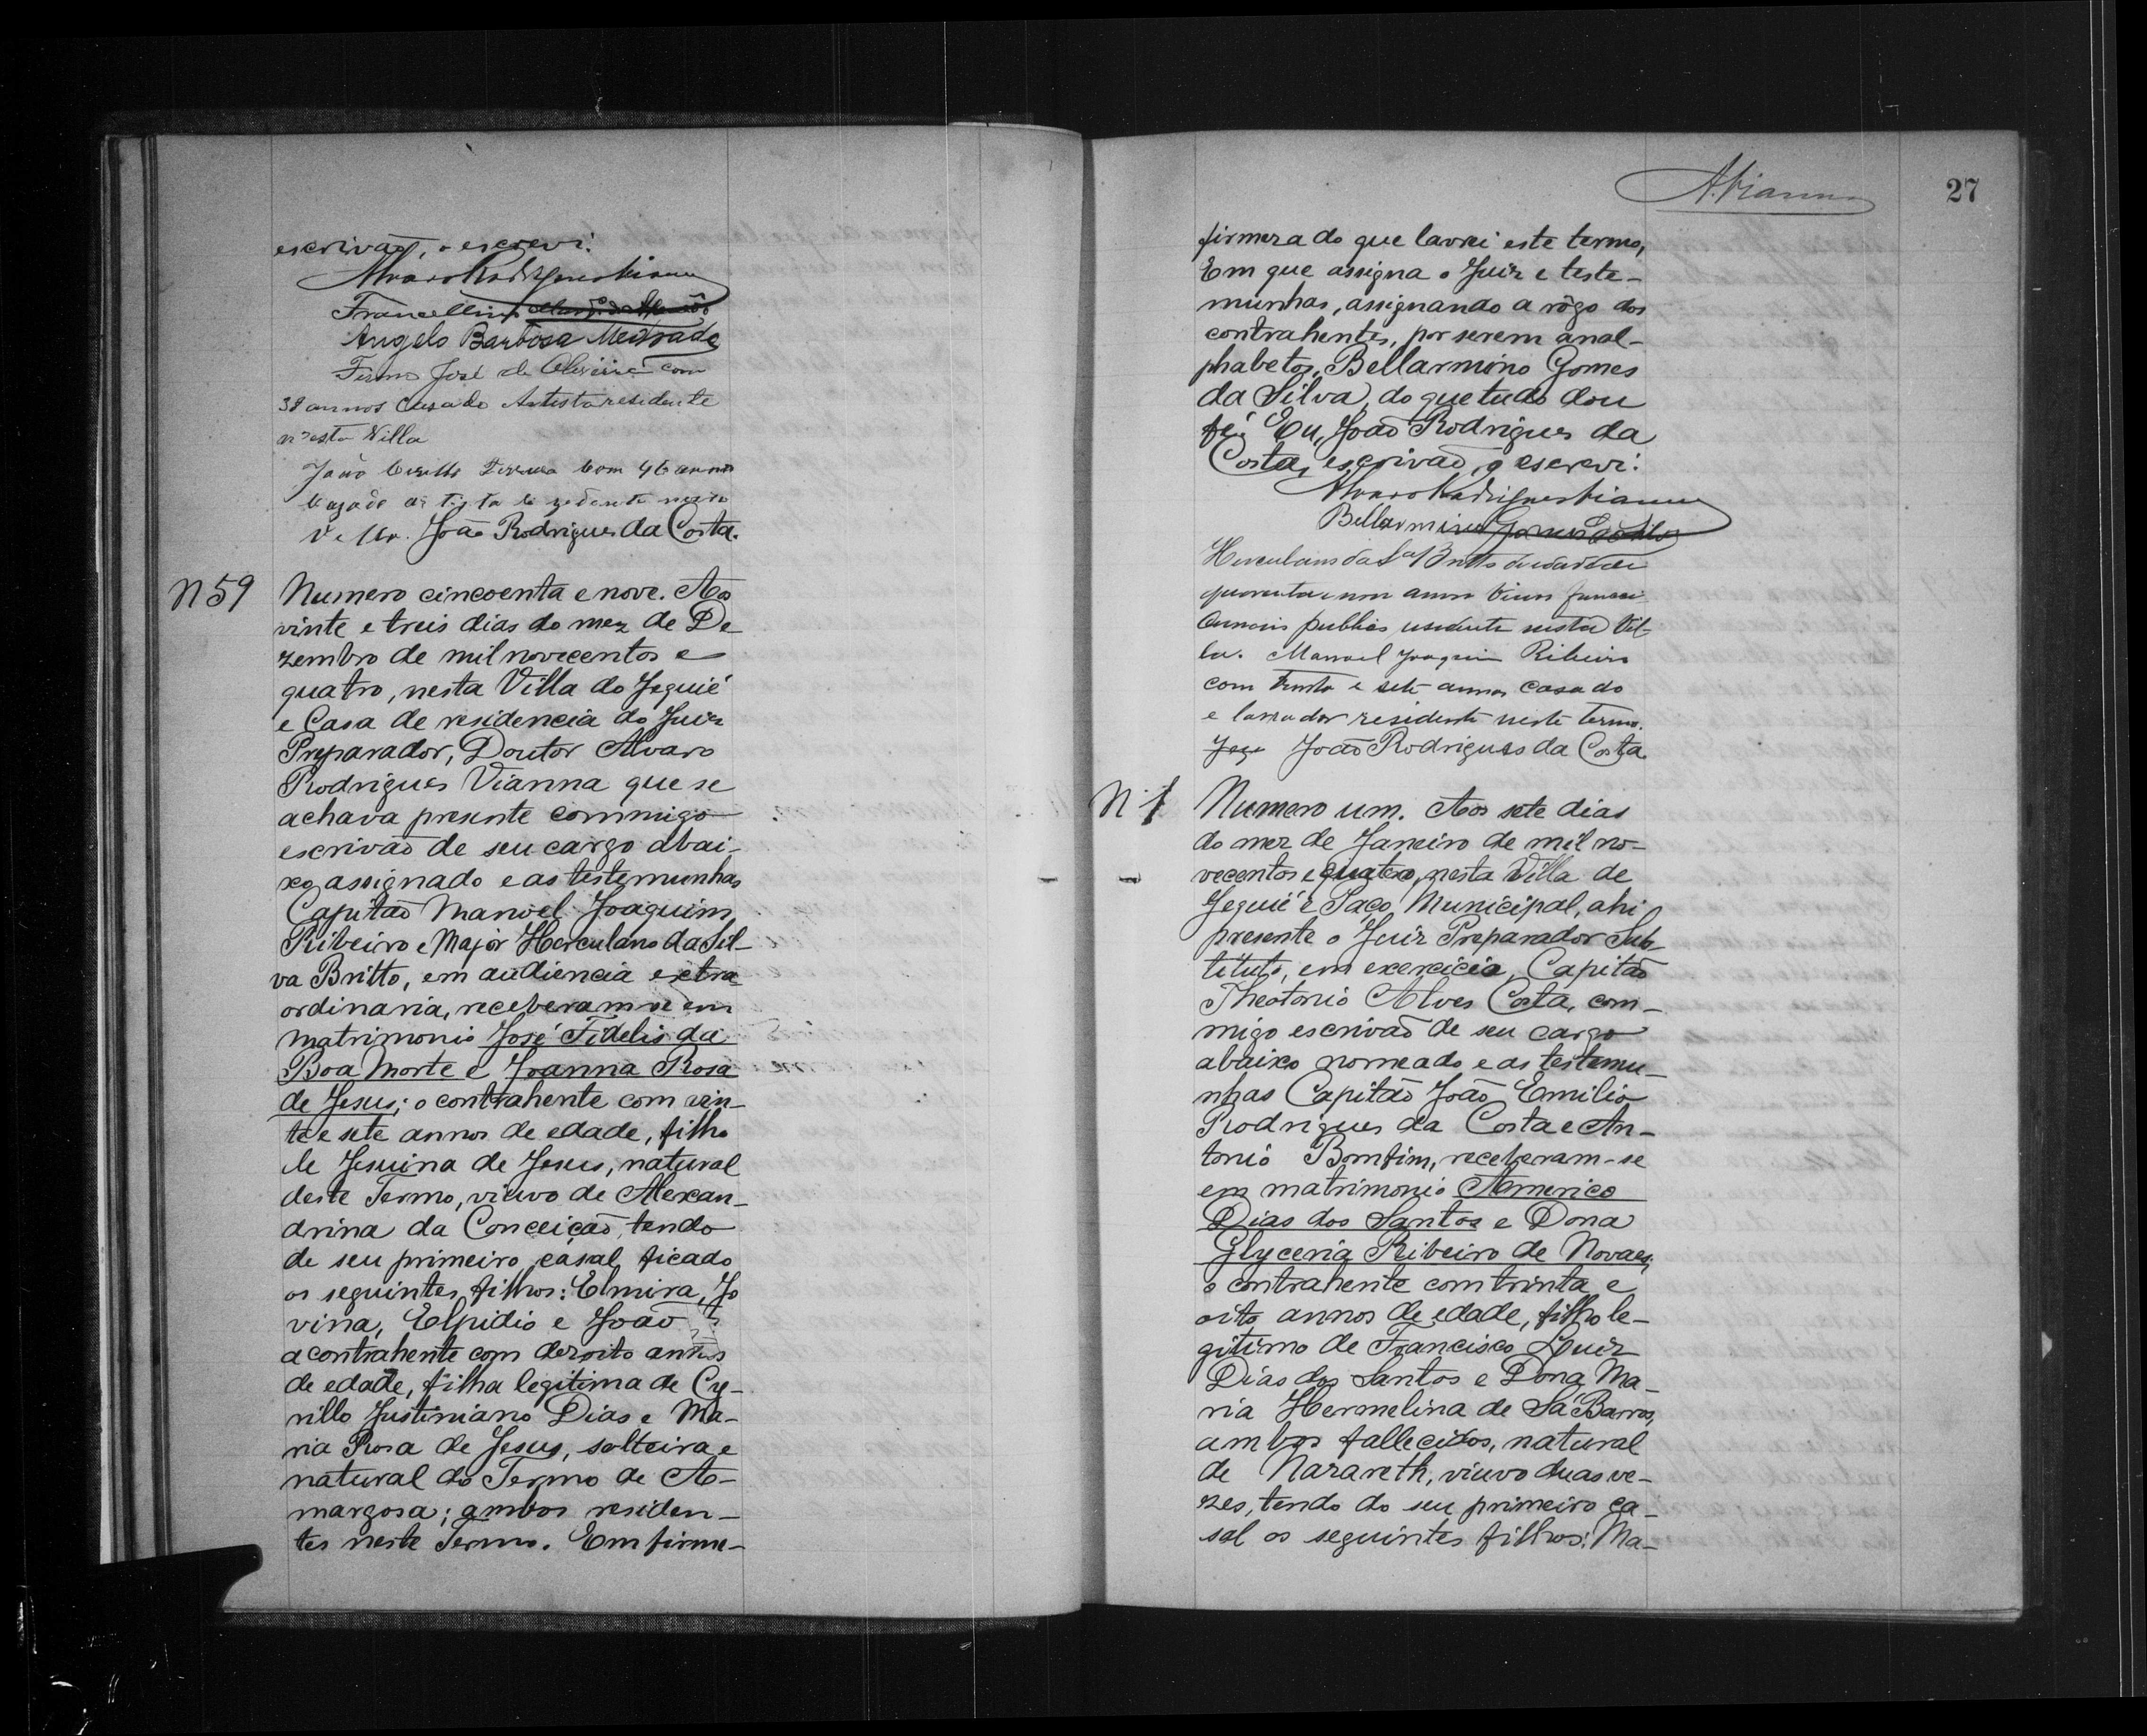 escrivão, o escrevi.
Alvaro Rodrigues Vianna
Francellino
Angelo Barbosa Medrado
Firmo José de Oliveira com
38 annos Casado Artista residente
nesta Villa
João Cirillo Ferreira Com 46 annos
Cazado artista rezedente nesta
Villa. João Rodrigues da Costa.
N 59
Numero cincoenta e nove. Aos
vinte e treis dias do mez de De-
zembro de mil novecentos e
quatro, nesta Villa do Jequié
e Casa de residencia do Juiz
Preparador, Doutor Alvaro
Rodrigues Vianna que se
achava presente commigo
escrivão de seu cargo abai-
xo assignado e as testemunhas
Capitão Manoel Joaquim
Ribeiro e Major Herculano da Sil-
va Britto, em audiencia extra
ordinaria, receberam-se em
matrimonio José Fidelis da
Boa Morte e Joanna Rosa
de Jesus; o contrahente com vin-
te e sete annos de edade, filho
de Jesuina de Jesus, natural
deste Termo, viuvo de Alexan-
drina da Conceição, tendo
de seu primeiro casal ficado
os seguintes filhos: Elmira, Jo
vina, Elpidio e João
a contrahente com dezoito annos
de edade, filha legitima de Cy-
rillo Justiniano Dias e Ma-
ria Rosa de Jesus, solteira e
natural do Termo de A-
margosa; ambos residen-
tes neste Termo. Em firme-
A. Vianna
27
firmeza do que lavrei este termo,
Em que assigna o Juiz e teste-
munhas, assignando a rôgo dos
contrahentes, por serem anal-
phabetos, Bellarmino Gomes
da Silva, do que tudo dou
fé. Eu, João Rodrigues da
Costa, escrivão, o escrevi.
Alvaro Rodrigues Vianna
Bellarmino Gomes da Silva
Herculano da Sa Britto de idade de
quarenta e um annos viuvo funcci
onnario publico residente nesta Vil-
la. Manoel Joaquim Ribeiro
com trinta e sete annos casado
e lavrador residente neste termo.
João Rodrigues da Costa
N 1
Numero um. Aos sete dias
do mez de Janeiro de mil no-
vecentos e quatro, nesta Villa de
Jequié e Paço Municipal, ahi
presente o Juiz Preparador Sub-
tituto, em exercicio, Capitão
Theotonio Alves Costa, com-
migo escrivão de seu cargo
abaixo nomeado e as testemu-
nhas Capitão João Emilio
Rodrigues da Costa e An-
tonio Bomfim, receberam-se
em matrimonio Americo
Dias dos Santos e Dona
Glyceria Ribeiro de Novaes,
o contrahente com trinta e
oito annos de edade, filho le-
gitimo de Francisco Luiz
Dias dos Santos e Dona Ma-
ria Hermelina de Sá Barros,
ambos fallecidos, natural
de Nazareth, viuvo duas ve-
zes, tendo do seu primeiro ca-
sal os seguintes filhos: Ma-